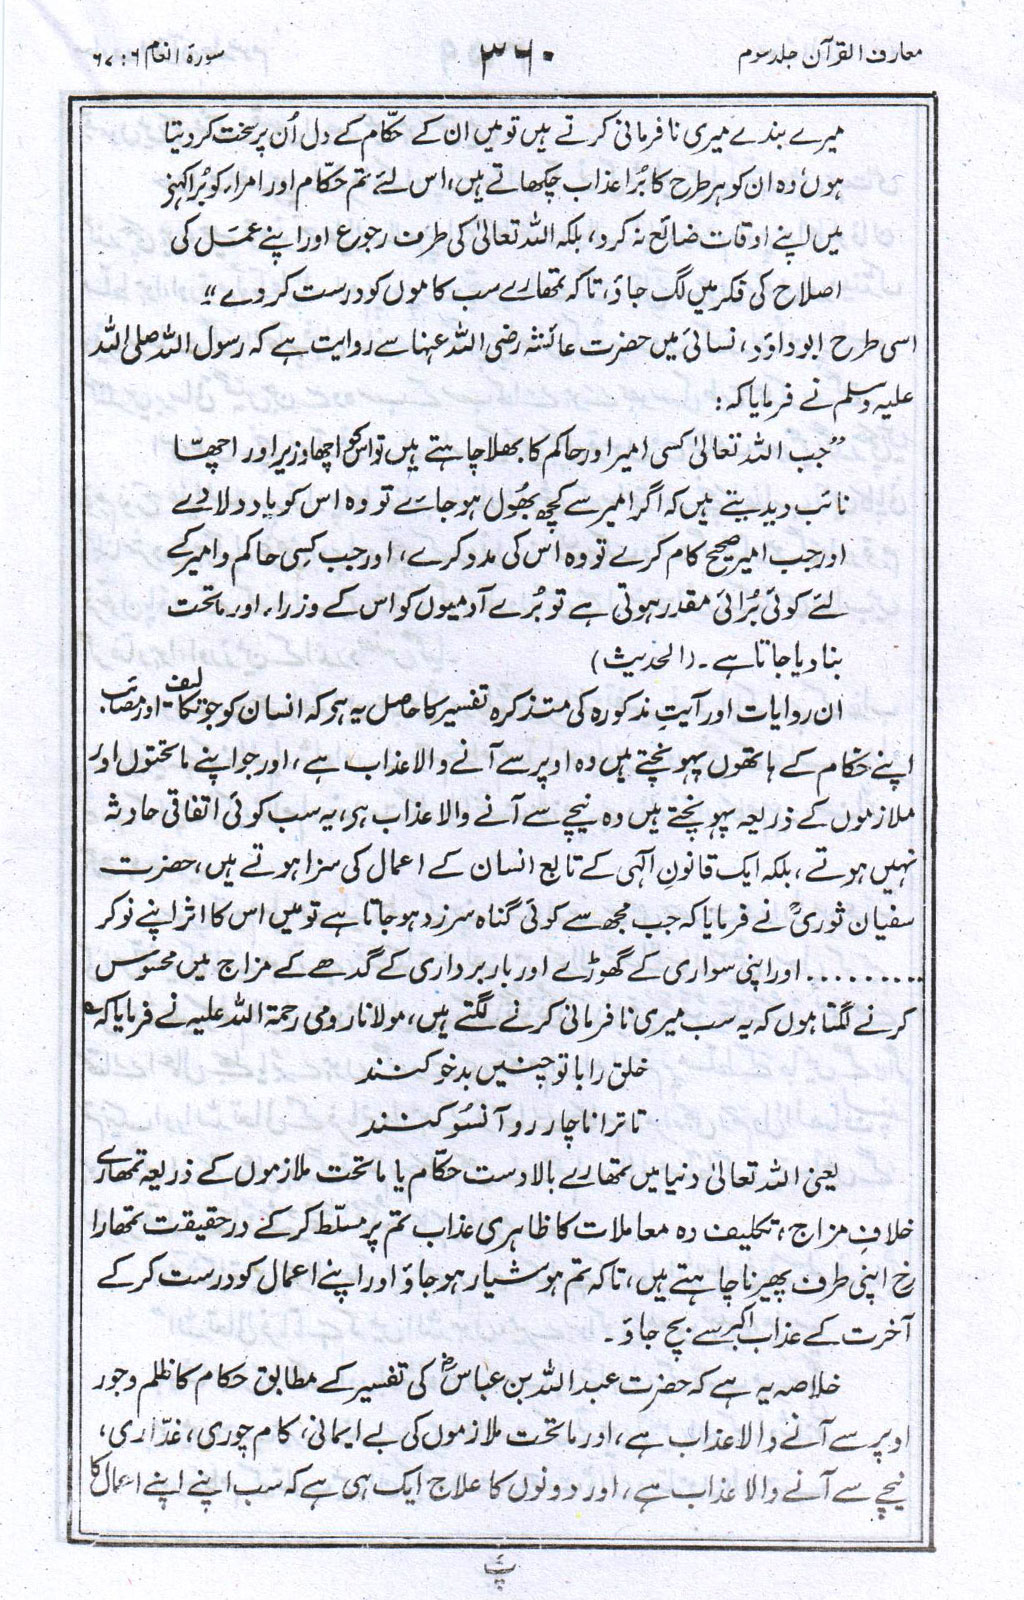 معارف القرآن جلد سوم
۳۶۰
سورۃ انعام ۶ : ۶۷
میرے بندے میری نافرمانی کرتے ہیں تو میں ان کے حکّام کے دل اُن پر سخت کردیتا
ہوں وہ ان کو ہر طرح کا بُرا عذاب چکھاتے ہیں، اس لئے تم حکّام اور امراء کو بُرا کہنے
میں اپنے اوقات ضائع نہ کرو، بلکہ اللہ تعالیٰ کی طرف رجوع اور اپنے عمَل کی
اصلاح کی فکر میں لگ جاؤ، تاکہ تمھارے سب کاموں کو درست کردے“
اسی طرح ابوداؤد، نسائی میں حضرت عائشہ رضی اللہ عنہا سے روایت ہے کہ رسول اللہ صلی اللہ
علیہ وسلم نے فرمایا کہ:
”جب اللہ تعالیٰ کسی امیر اور حاکم کا بھلا چاہتے ہیں تو اس کو اچھا وزیر اور اچھّا
نائب دیدیتے ہیں کہ اگر امیر سے کچھ بھُول ہوجائے تو وہ اس کو یاد دلا دے
اور جب امیر صحیح کام کرے تو وہ اس کی مدد کرے، اور جب کسی حاکم و امیر کے
لئے کوئی بُرائی مقدر ہوتی ہے تو بُرے آدمیوں کو اس کے وزراء اور ماتحت
بنا دیا جاتا ہے۔ (الحدیث)
ان روایات اور آیتِ مذکورہ کی متذکرہ تفسیر کا حاصل یہ ہو کہ انسان کو جو تکالیف اور مصائب
اپنے حکّام کے ہاتھوں پہونچتے ہیں وہ اوپر سے آنے والا عذاب ہے، اور جو اپنے ماتحتوں اور
ملازموں کے ذریعہ پہونچتے ہیں وہ نیچے سے آنے والا عذاب ہی، یہ سب کوئی اتفاقی حادثہ
نہیں ہوتے، بلکہ ایک قانونِ الٰہی کے تابع انسان کے اعمال کی سزا ہوتے ہیں، حضرت
سفیان ثوریؒ نے فرمایا کہ جب مجھ سے کوئی گناہ سرزد ہوجاتا ہے تو میں اس کا اثر اپنے نوکر
......... اور اپنی سواری کے گھوڑے اور باربرداری کے گدھے کے مزاج میں محسوس
کرنے لگتا ہوں کہ یہ سب میری نافرمانی کرنے لگتے ہیں، مولانا رومی رحمۃ اللہ علیہ نے فرمایا کہ ؎
خلق را با تو چنیں بدخو کنند
تا ترا ناچار رو آنسُو کنند
یعنی اللہ تعالیٰ دنیا میں تمھارے بالادست حکّام یا ماتحت ملازموں کے ذریعہ تمھارے
خلافِ مزاج، تکلیف دہ معاملات کا ظاہری عذاب تم پر مسلّط کرکے درحقیقت تمھارا
رخ اپنی طرف پھیرنا چاہتے ہیں، تاکہ تم ہوشیار ہوجاؤ اور اپنے اعمال کو درست کرکے
آخرت کے عذاب اکبر سے بچ جاؤ۔
خلاصہ یہ ہے کہ حضرت عبداللہ بن عباسؓ کی تفسیر کے مطابق حکام کا ظلم و جور
اوپر سے آنے والا عذاب ہے، اور ماتحت ملازموں کی بے ایمانی، کام چوری، غدّاری،
نیچے سے آنے والا عذاب ہے، اور دونوں کا علاج ایک ہی ہے کہ سب اپنے اپنے اعمال کا